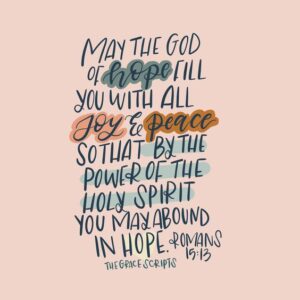 MAY THE GOD
OF hope FILL
YOU WITH ALL
JOY & peace
SO THAT BY THE
POWER OF THE
HOLY SPIRIT
YOU MAY ABOUND
IN HOPE. ROMANS
15:13
THEGRACESCRIPTS